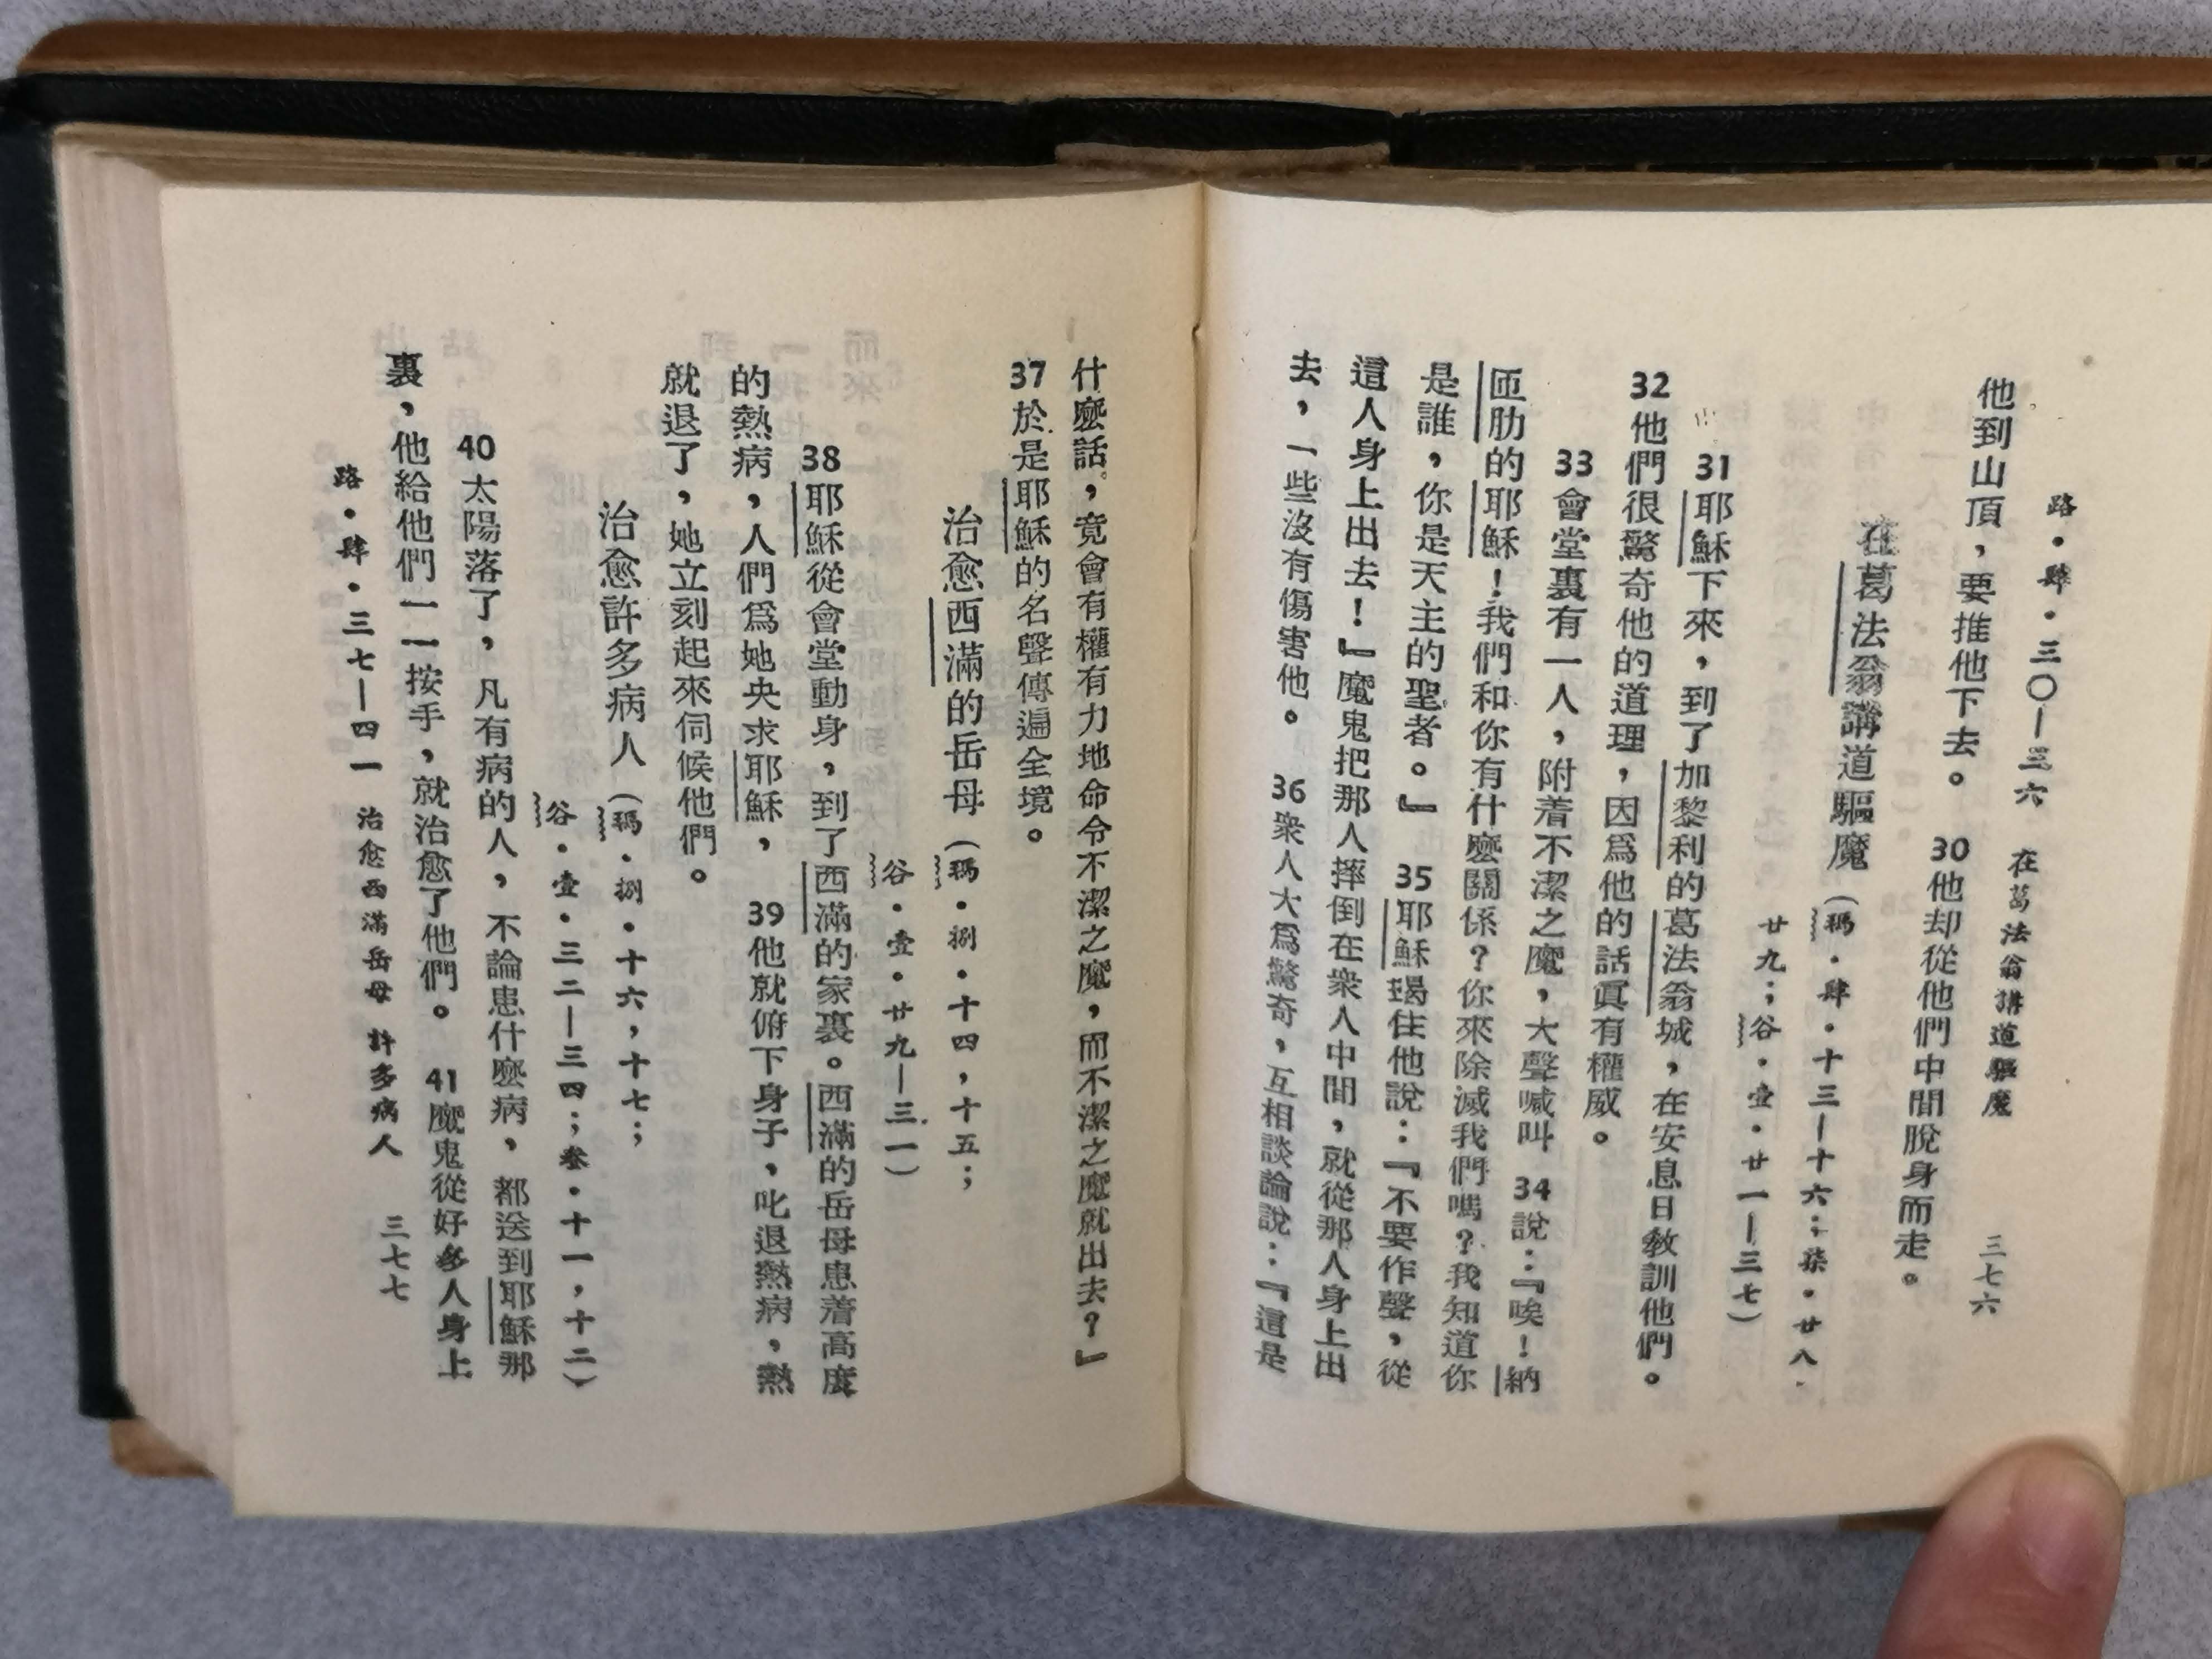 路·肆·三〇—三六　在葛法翁講道驅魔　三七六
他到山頂，要推他下去。　30他却從他們中間脫身而走。
在葛法翁講道驅魔（瑪·肆·十三—十六；柒·廿八·
廿九；谷·壹·廿一—三七）
31耶穌下來，到了加黎利的葛法翁城，在安息日教訓他們。
32他們很驚奇他的道理，因爲他的話眞有權威。
33會堂裏有一人，附着不潔之魔，大聲喊叫　34說：『唉！納
匝肋的耶穌！我們和你有什麼關係？你來除滅我們嗎？我知道你
是誰，你是天主的聖者。』　35耶穌遏住他說：『不要作聲，從
這人身上出去！』魔鬼把那人摔倒在衆人中間，就從那人身上出
去，一些沒有傷害他。　36衆人大爲驚奇，互相談論說：『這是
什麼話，竟會有權有力地命令不潔之魔，而不潔之魔就出去？』
37於是耶穌的名聲傳遍全境。
治愈西滿的岳母（瑪·捌·十四，十五；
谷·壹·廿九—三一）
38耶穌從會堂動身，到了西滿的家裏。西滿的岳母患着高度
的熱病，人們爲她央求耶穌，　39他就俯下身子，叱退熱病，熱
就退了，她立刻起來伺候他們。
治愈許多病人（瑪·捌·十六，十七；
谷·壹·三二—三四；叁·十一，十二）
40太陽落了，凡有病的人，不論患什麼病，都送到耶穌那
裏，他給他們一一按手，就治愈了他們。　41魔鬼從好多人身上
路·肆·三七—四一　治愈西滿岳母　許多病人　三七七